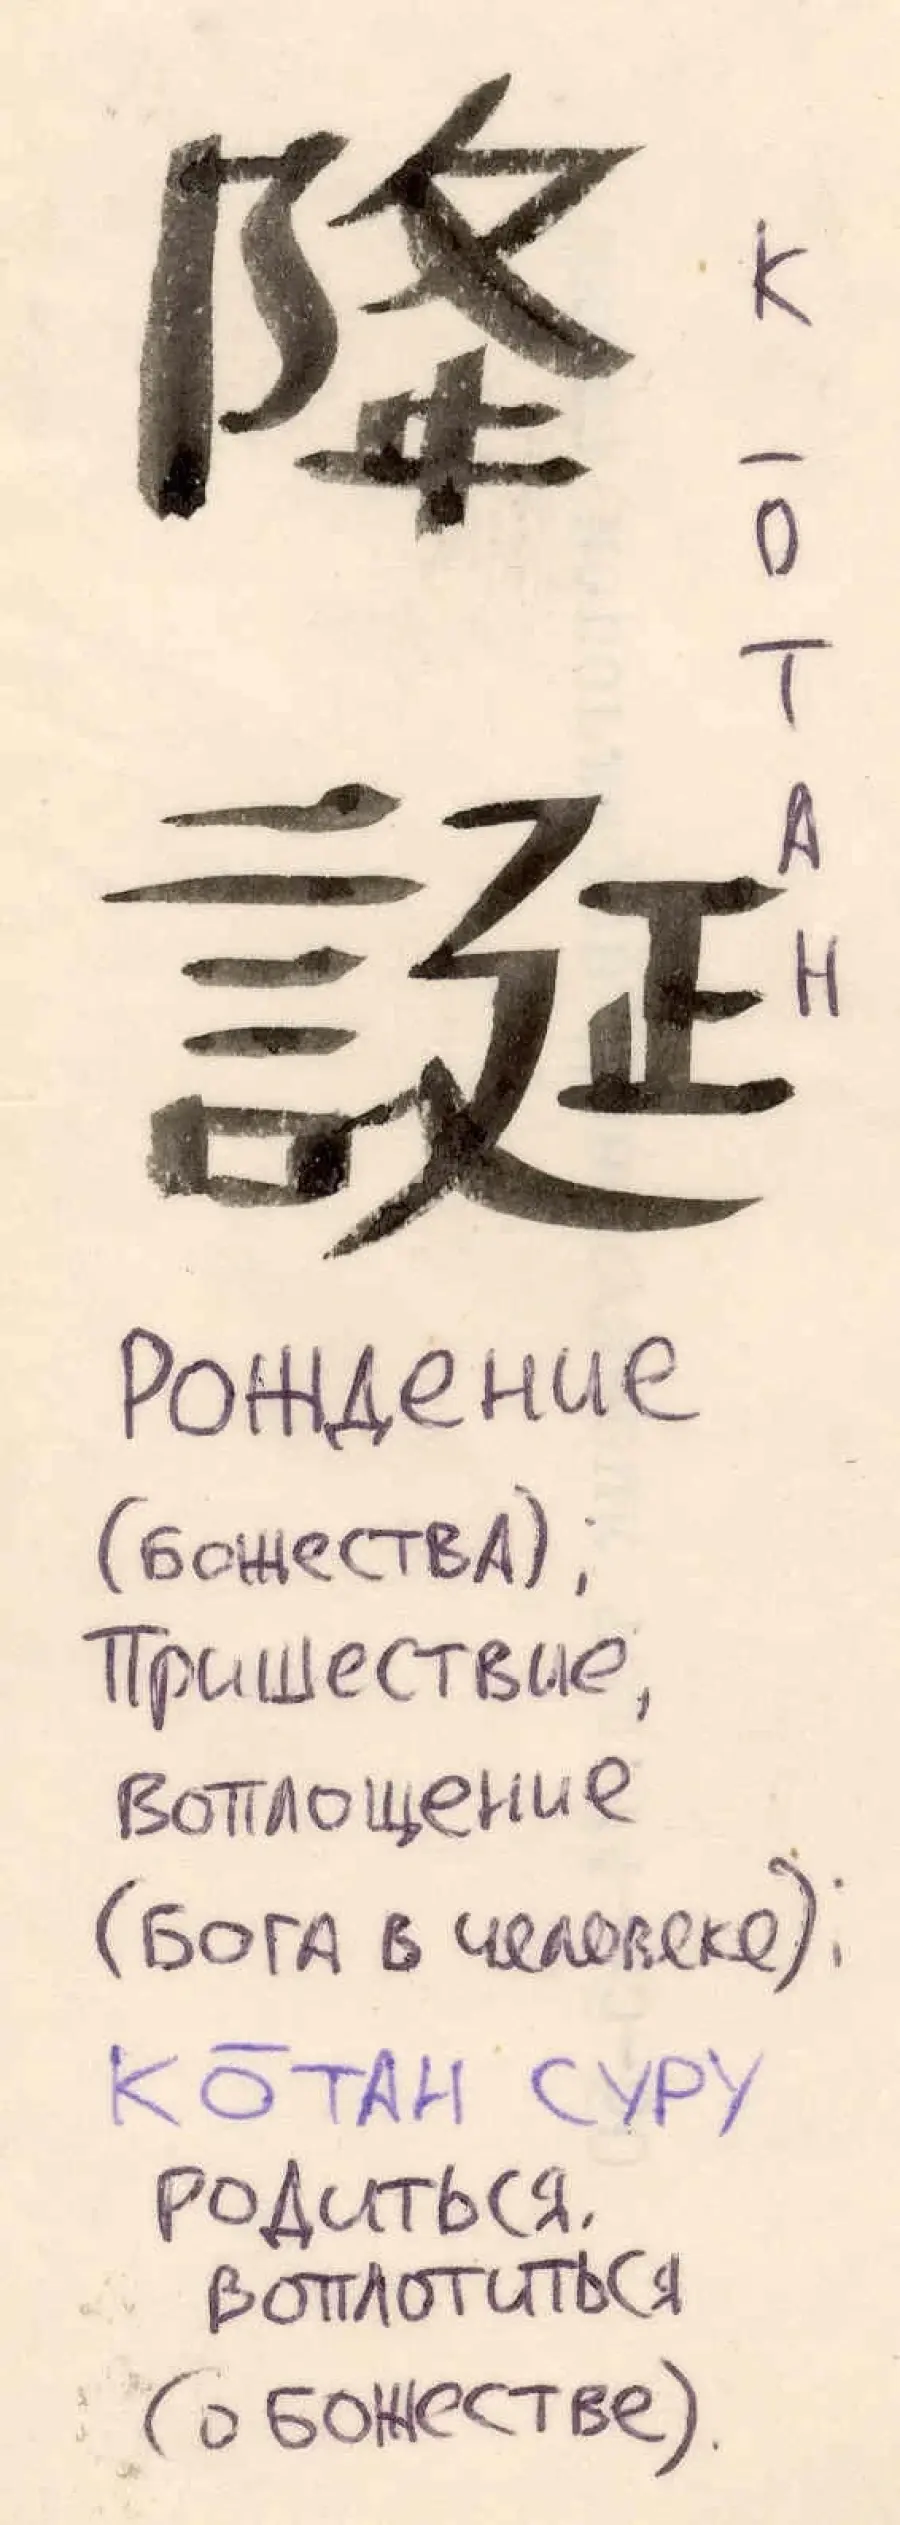 降
誕
КО̄ТАН
Рождение
(божества);
Пришествие,
воплощение
(Бога в человеке);
КО̄ТАН СУРУ
родиться.
воплотиться
(о божестве).